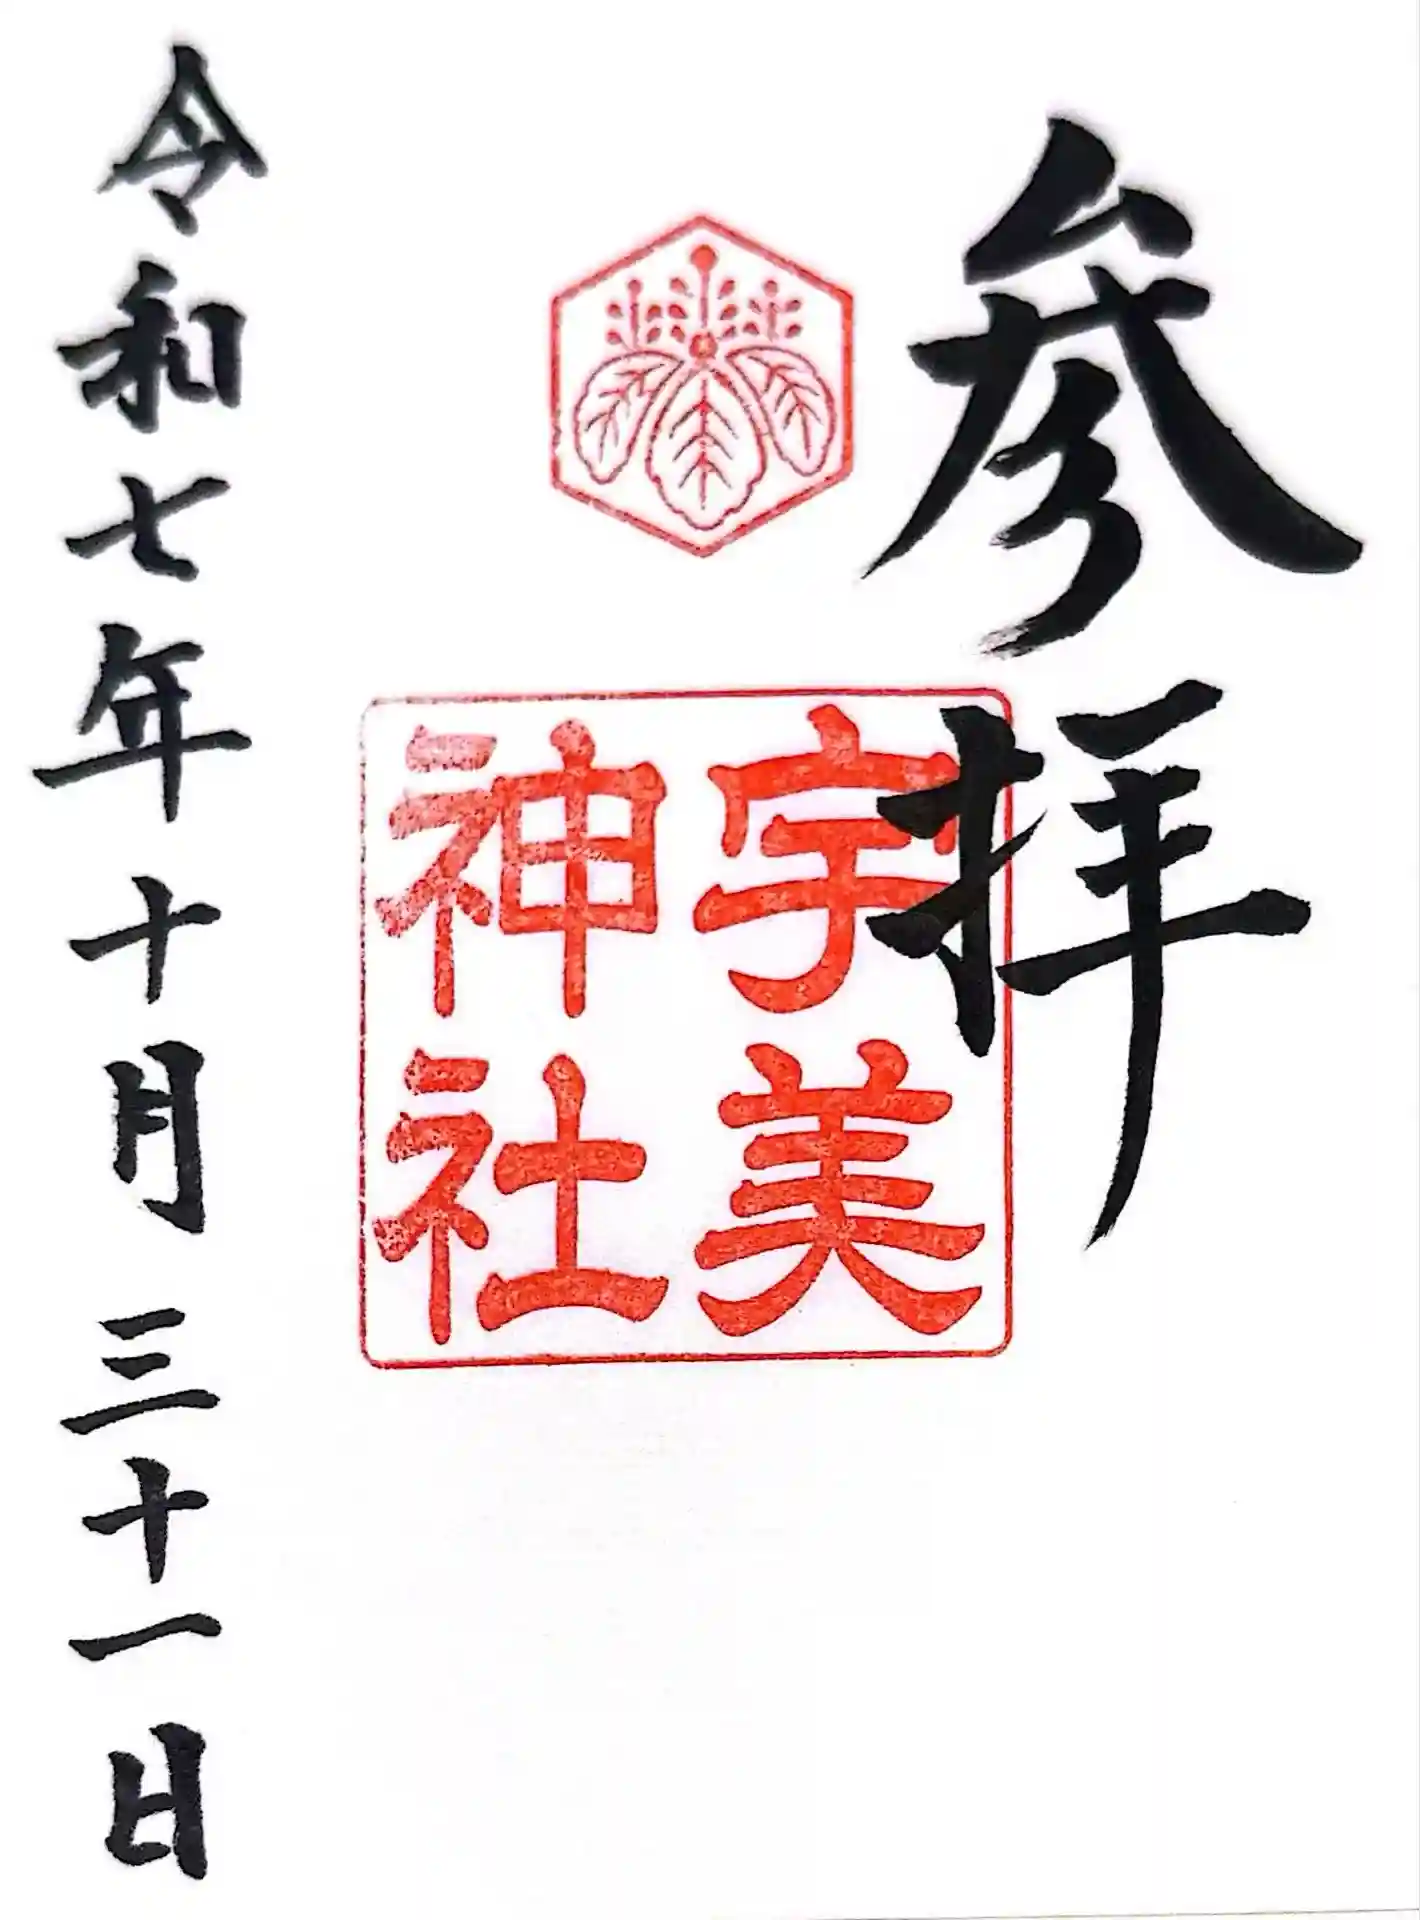 参拝
宇美
神社
令和七年十月三十一日